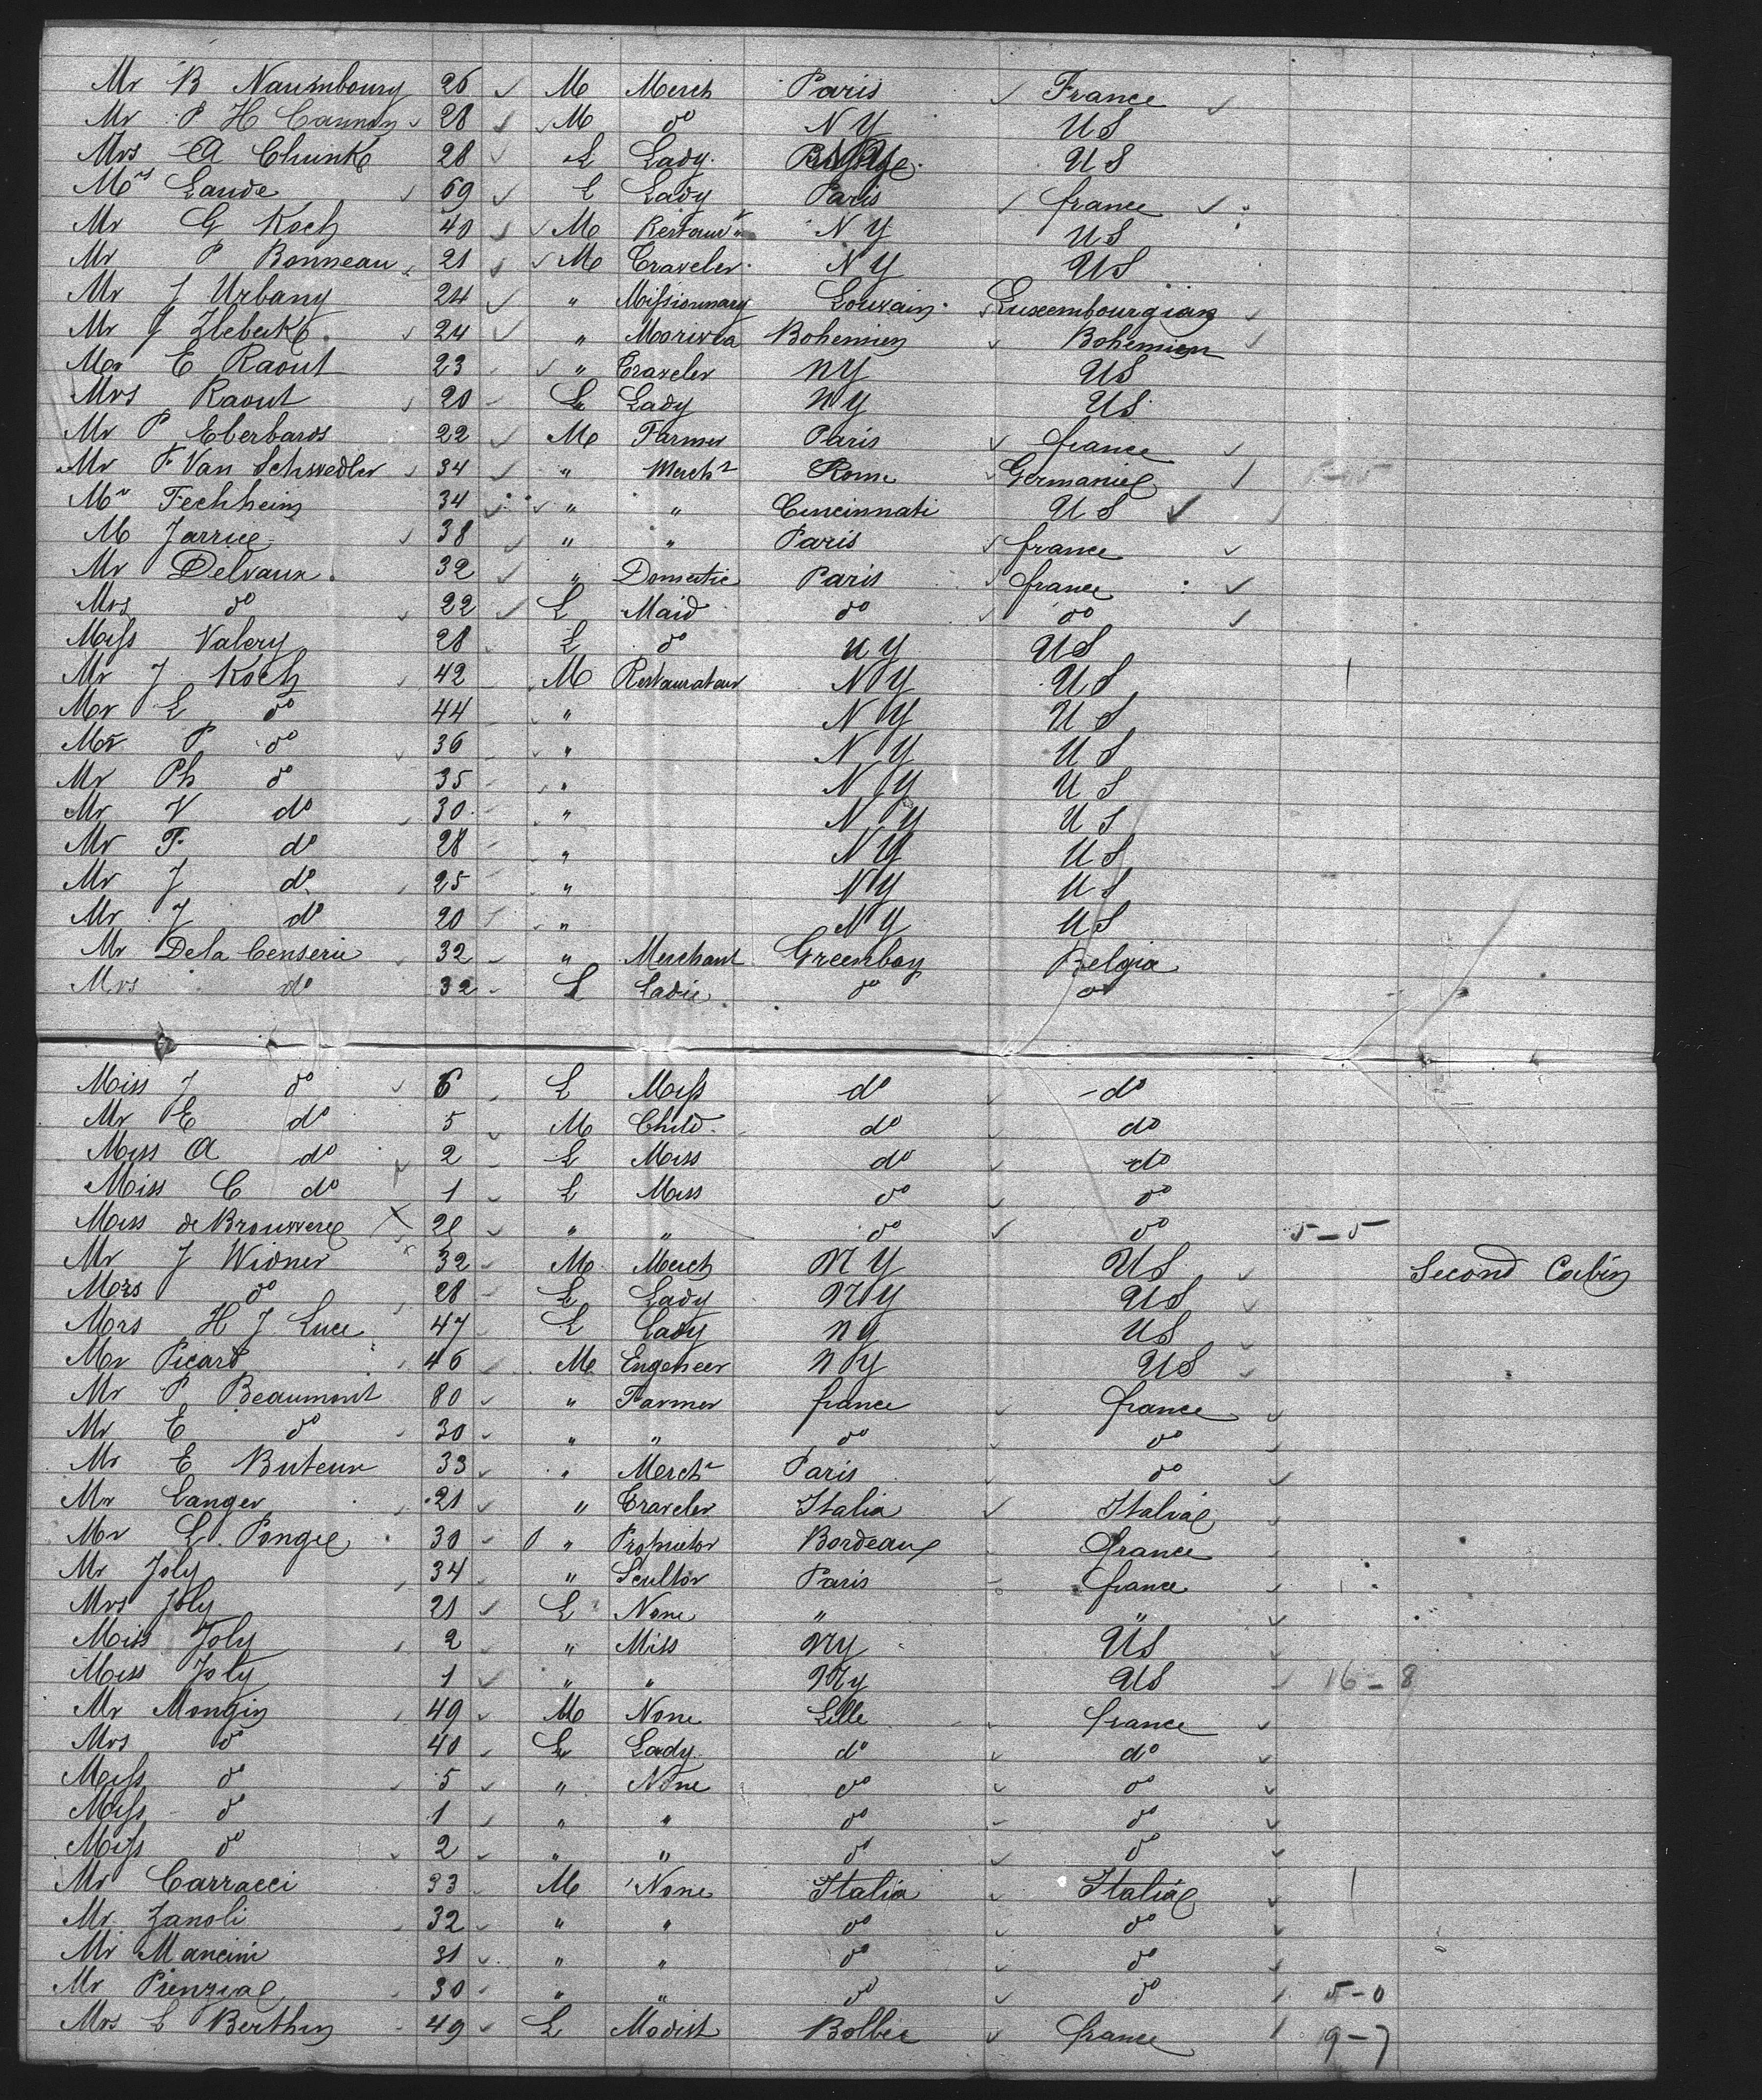 Mr B Naumbourg 26 M Merch Paris France
Mr P H Cannon 28 M do NY US
Mrs A Chunke 28 L Lady NY US
Mrs Lande 69 L Lady Paris france
Mr G Koch 40 M Restaur NY US
Mr P Bonneau 21 M Traveler NY US
Mr J Urbany 24 " Missionnary Louvain Luxembourgian
Mr J 24 " Bohemien Bohemien
Mr E Raout 23 " Traveler NY US
Mrs Raout 20 L Lady NY US
Mr P Eberbards 22 M Farmer Paris france
Mr F Van Schwedler 34 " Mercht Rome Germanie
Mr Fechheim 34 " " Cincinnati US
M Jarrie 38 " " Paris france
Mr Delvaux 32 " Domestic Paris france
Mrs do 22 L Maid do do
Miss Valery 28 L do NY US
Mr J Koch 42 M Restaurateur NY US
Mr L do 44 " NY US
Mr P do 36 " NY US
Mr Ph do 35 " NY US
Mr V do 30 " NY US
Mr F do 28 " NY US
Mr J do 25 " NY US
Mr J do 20 " NY US
Mr De la Censerie 32 " Merchant Greenbay Belgia
Mrs do 32 L Ladie do do
Miss J do 6 L Miss do do
Mr E do 5 M Child do do
Miss A do 2 L Miss do do
Miss C do 1 L Miss do do
Miss de Brouwere " " do do 5-5
Mr J Widner 32 M Merch NY US Second Cabin
Mrs do 28 L Lady NY US
Mrs H J Luce 47 L Lady NY US
Mr Picard 46 M Engeneer NY US
Mr P Beaumont 80 " Farmer france france
Mr E do 30 " " do do
Mr E Buteux 33 " Mercht Paris do
Mr Canger 21 " Traveler Italia Italia
Mr L. Pongie 30 " Proprietor Bordeaux france
Mr Joly 34 " Scultor Paris france
Mrs Joly 21 L None " "
Miss Joly 2 " Miss NY US
Miss Joly 1 " " NY US 16-8
Mr Mongin 49 M None Lille france
Mrs do 40 L Lady do do
Miss do 5 " None do do
Miss do 1 " " do do
Miss do 2 " " do do
Mr Carracci 33 M None Italia Italia
Mr Zanoli 32 " " do do
Mr Mancini 31 " " do do
Mr 30 " " do do 5-0
Mrs L Berthin 49 L Modist Bolbec france 9-7